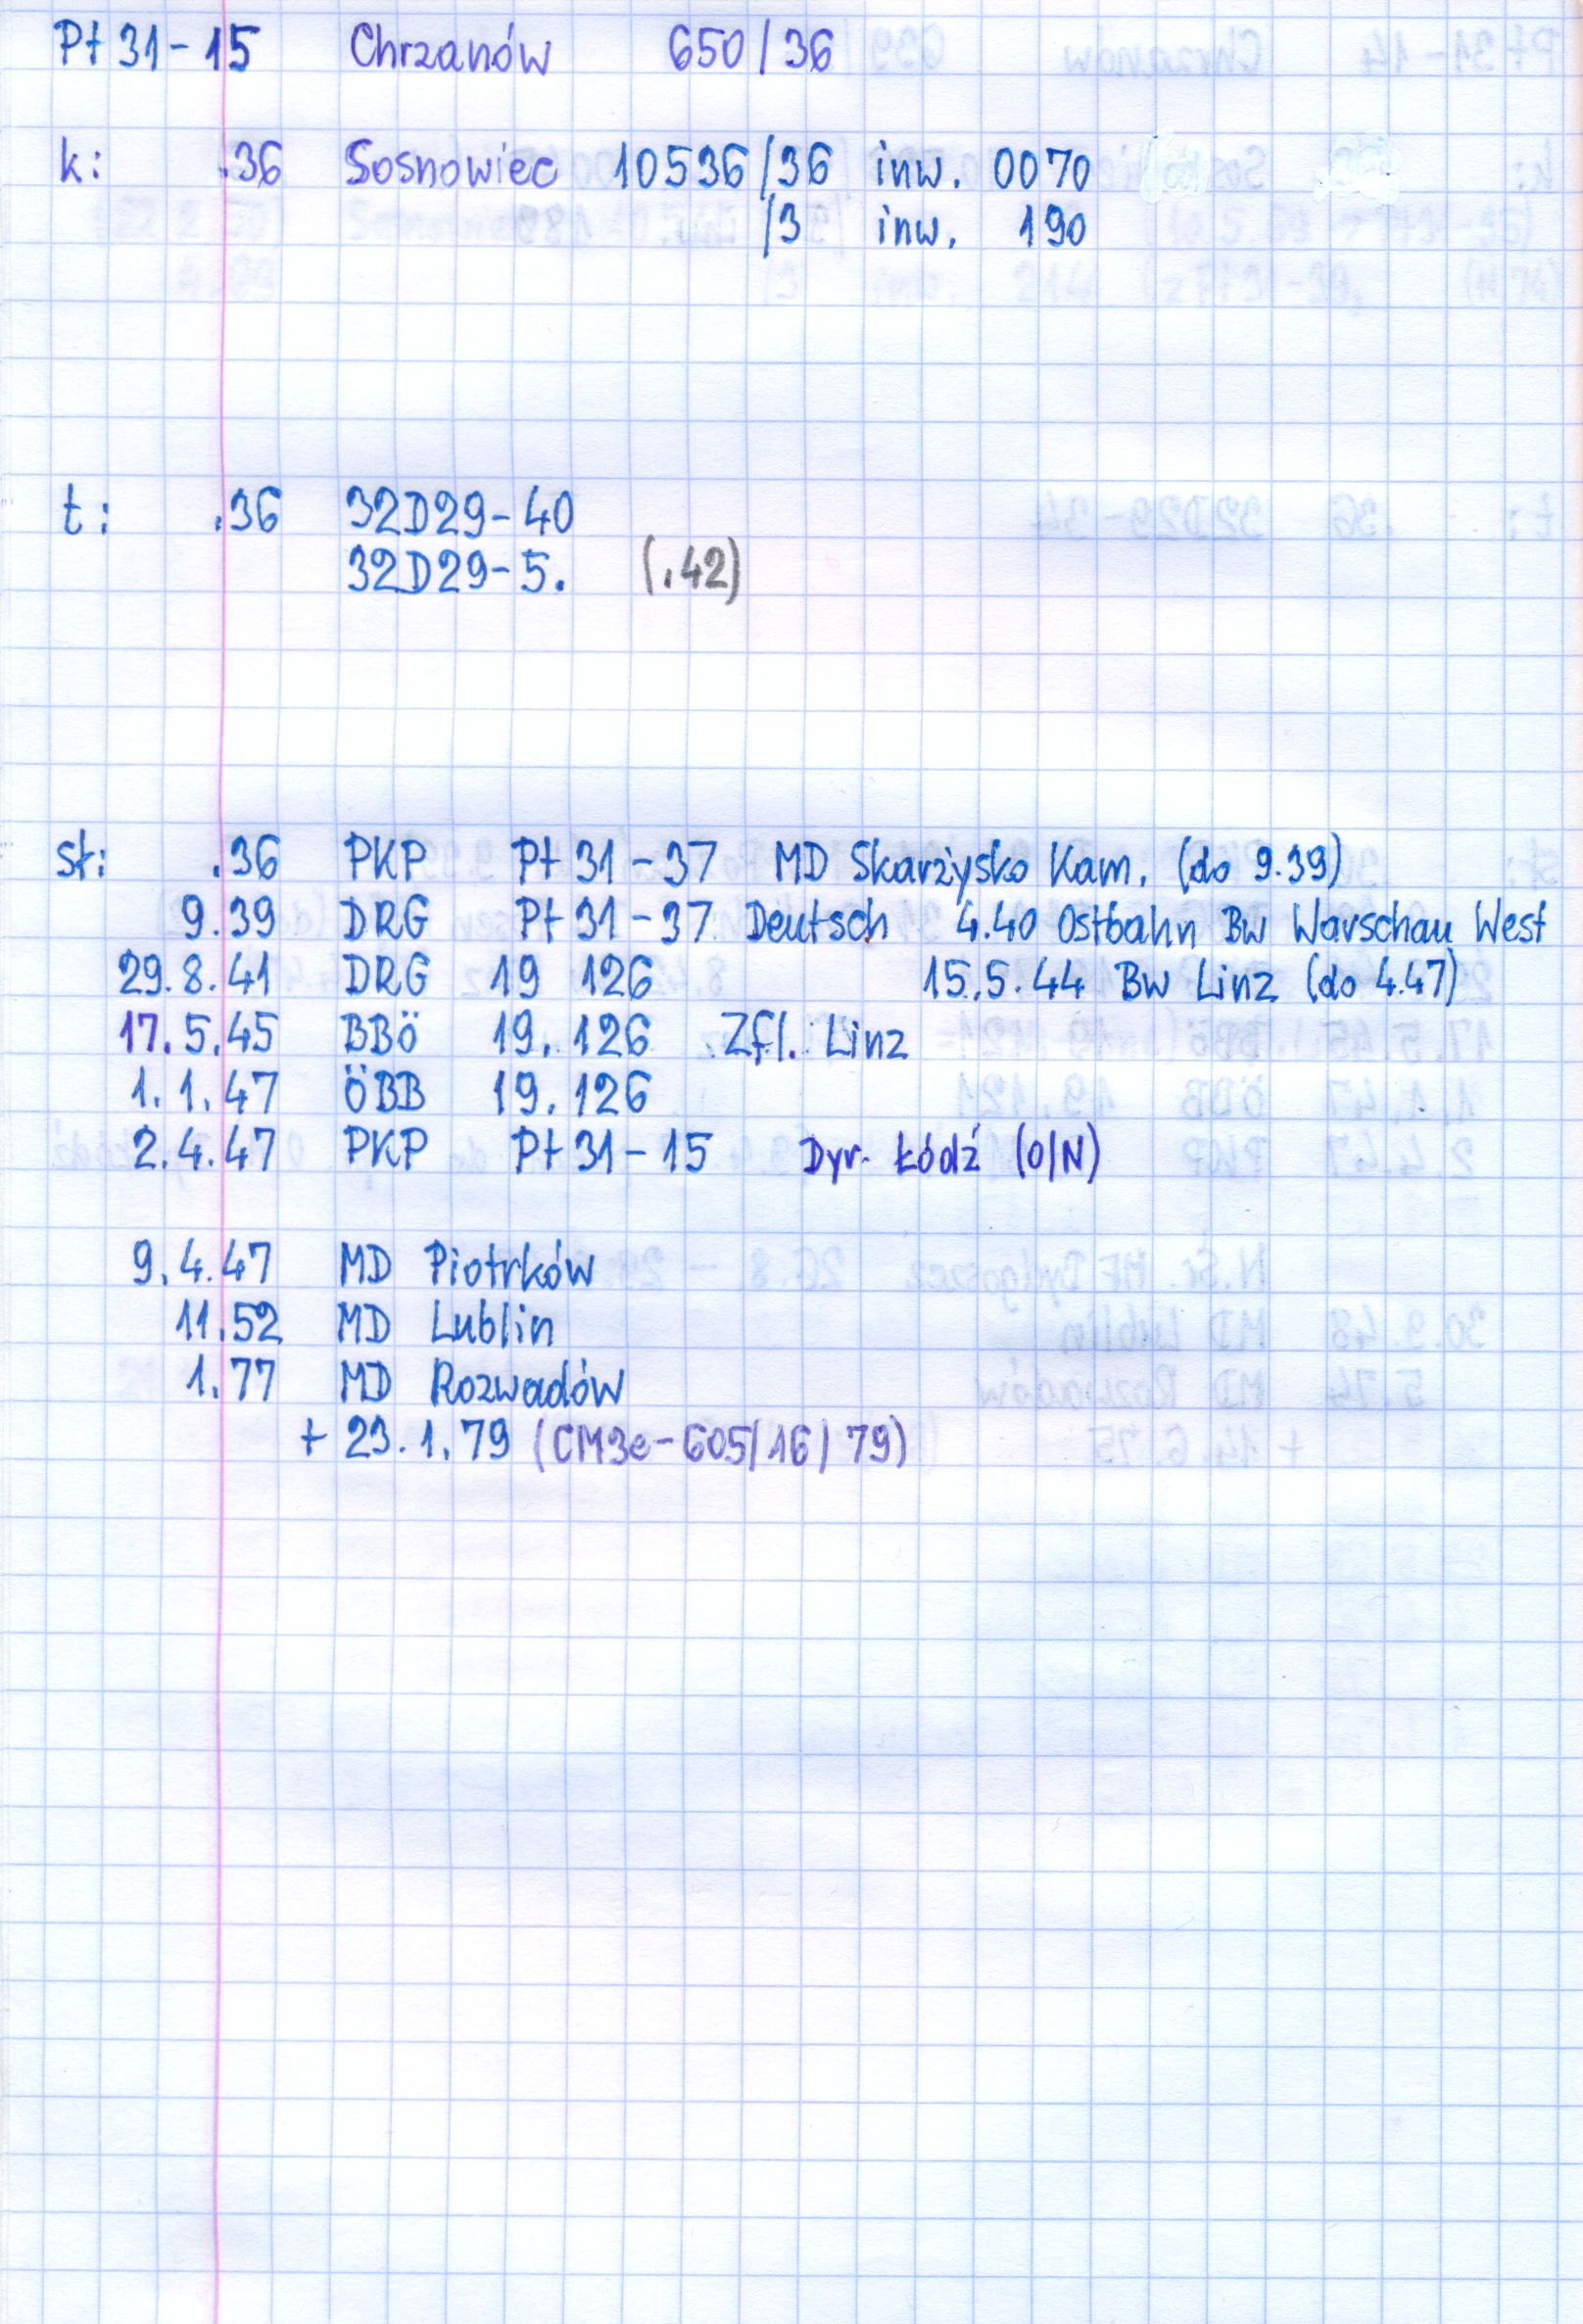 Pt 31-15 Chrzanów 650/36
k: .36 Sosnowiec 10536/36 inw. 0070
/3 inw. 190
t: .36 32D29-40
32D29-5. (.42)
st: .36 PKP Pt 31-37 MD Skarżysko Kam. (do 9.39)
9.39 DRG Pt 31-37 Deutsch 4.40 Ostbahn Bw Warschau West
29.8.41 DRG 19 126 15.5.44 Bw Linz (do 4.47)
17.5.45 BBö 19.126 Zfl. Linz
1.1.47 ÖBB 19.126
2.4.47 PKP Pt 31-15 Dyr. Łódź (O/N)
9.4.47 MD Piotrków
11.52 MD Lublin
1.77 MD Rozwadów
+ 23.1.79 (CM3e-605/16/79)